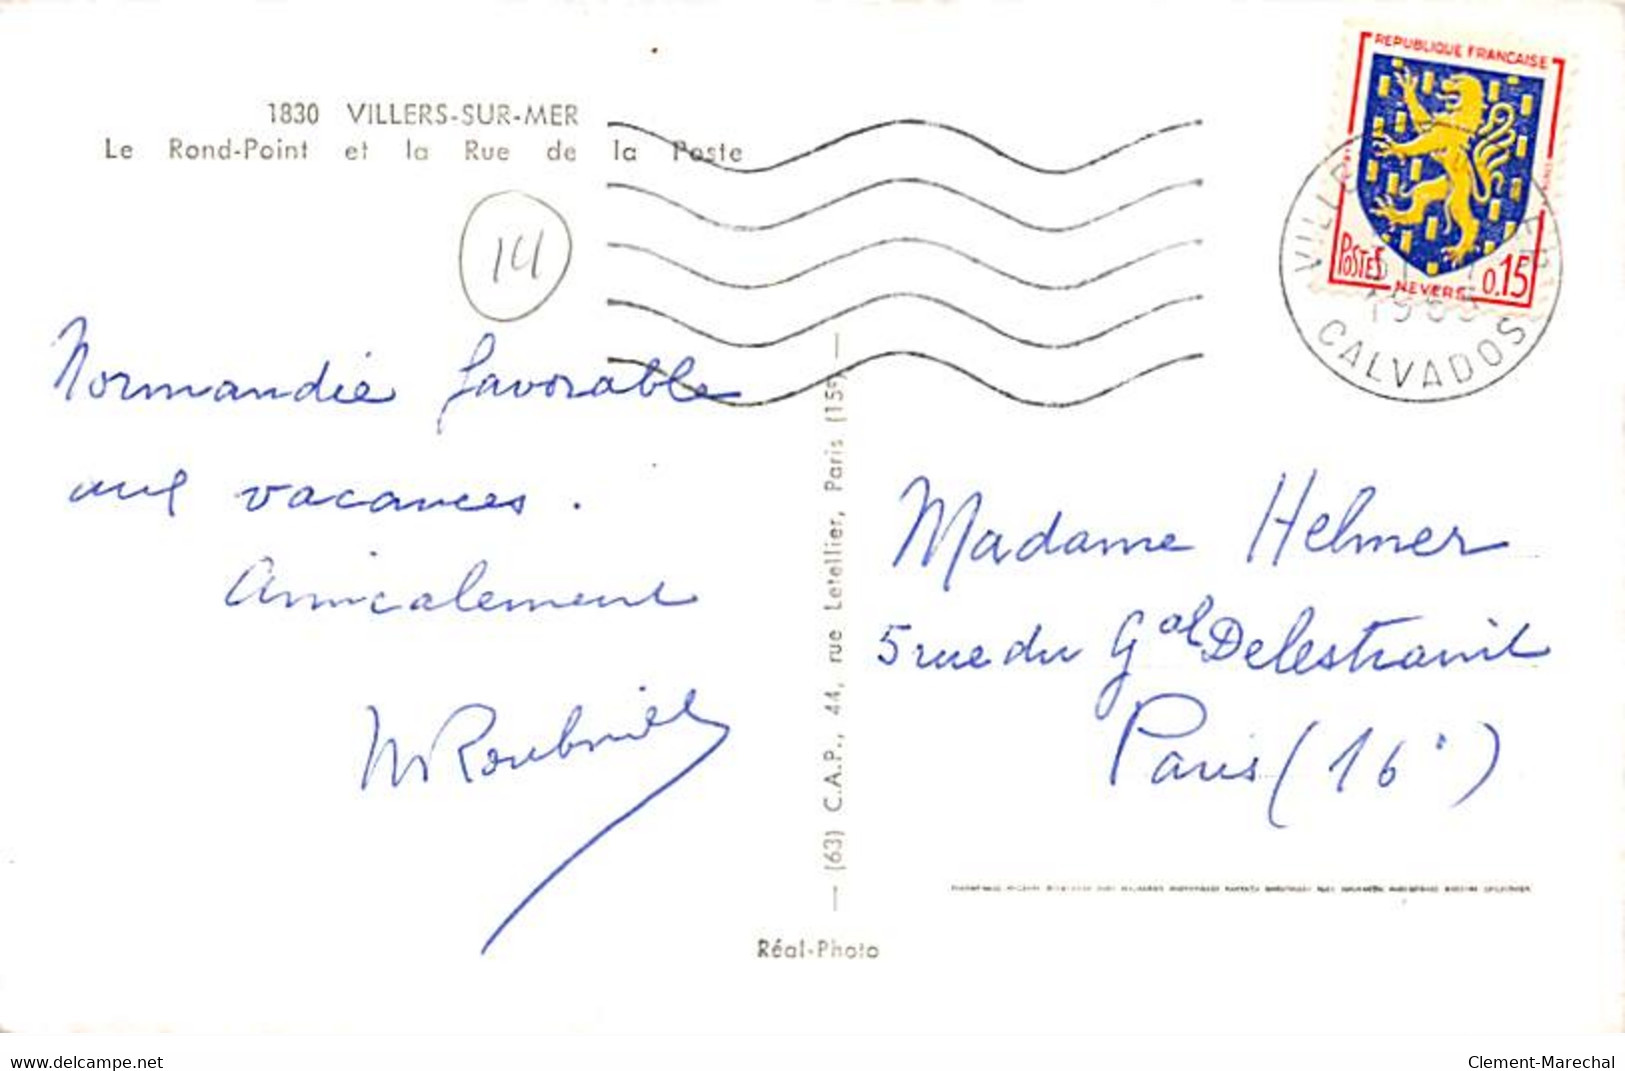 1830 VILLERS-SUR-MER
Le Rond-Point et la Rue de la Poste
14
Normandie favorable
aux vacances.
Amicalement
(63) C.A.P., 44, rue Letellier, Paris (15e)
Réal-Photo
REPUBLIQUE FRANCAISE
POSTES
NEVERS
0.15
CALVADOS
Madame Helmer
5 rue du Gal Delestraint
Paris (16e)
www.delcampe.net
Clement-Marechal